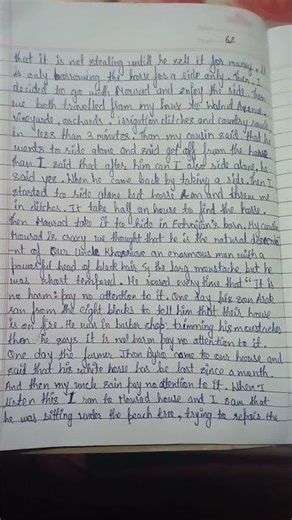 62
that it is not stealing until he sell it for money. It
is only borrowing the horse for a ride only. Then, I
decided to go with Mourad and enjoy the ride. Then
we both travelled from my house to Walnut Avenue,
vineyards, orchards, irrigation ditches and country road
in less than 3 minutes. Than my cousin said that he
wants to ride alone and said get off from the horse
than I said that after him can I also ride alone, he
said yes. When he came back by taking a ride. Then I
started to ride alone but horse ran and threw me
in ditches. It take half an hour to find the horse.
Then Mourad take it to hide in Fetvajian's barn. My cousin
Mourad is crazy we thought that he is the natural descend-
nt of our Uncle Khosrove an enormous man with a
powerful head of black hair long moustache but he
was short tempered. He roared every time that "It is
no harm; pay no attention to it. One day his son Arak
ran from the eight blocks to tell him that their house
is on fire. He was in barber shop trimming his moustaches
then he says it is not harm pay no attention to it.
One day the farmer Jhon Byro came to our house and
said that his white horse has be lost since a month.
And then my uncle said pay no attention to it. When I
listen this I ran to Mourad house and I saw that
he was sitting under the peach tree, trying to repair the